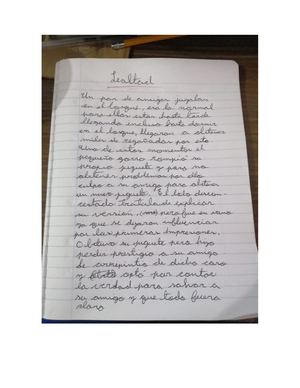 Lealtad
Un par de amigos jugaban
en el bosque, era lo normal
para ellos estar hasta tarde
llegando incluso hasta dormir
en el bosque, llegaron a obtener
miles de regañadas por esto
Uno de estos momentos el
pequeño zorro rompió su
propio juguete y para no
obtener problemas por ello
culpo a su amigo para obtener
un nuevo juguete. El lobo descon-
certado trataba de explicar
su versión, pero fue en vano
ya que se dejaron influenciar
por las primeras impresiones,
Obtuvo su juguete pero hizo
perder prestigio a su amigo
se arrepintio de dicho caso
y optó por contar
la verdad para salvar a
su amigo y que todo fuera
claro